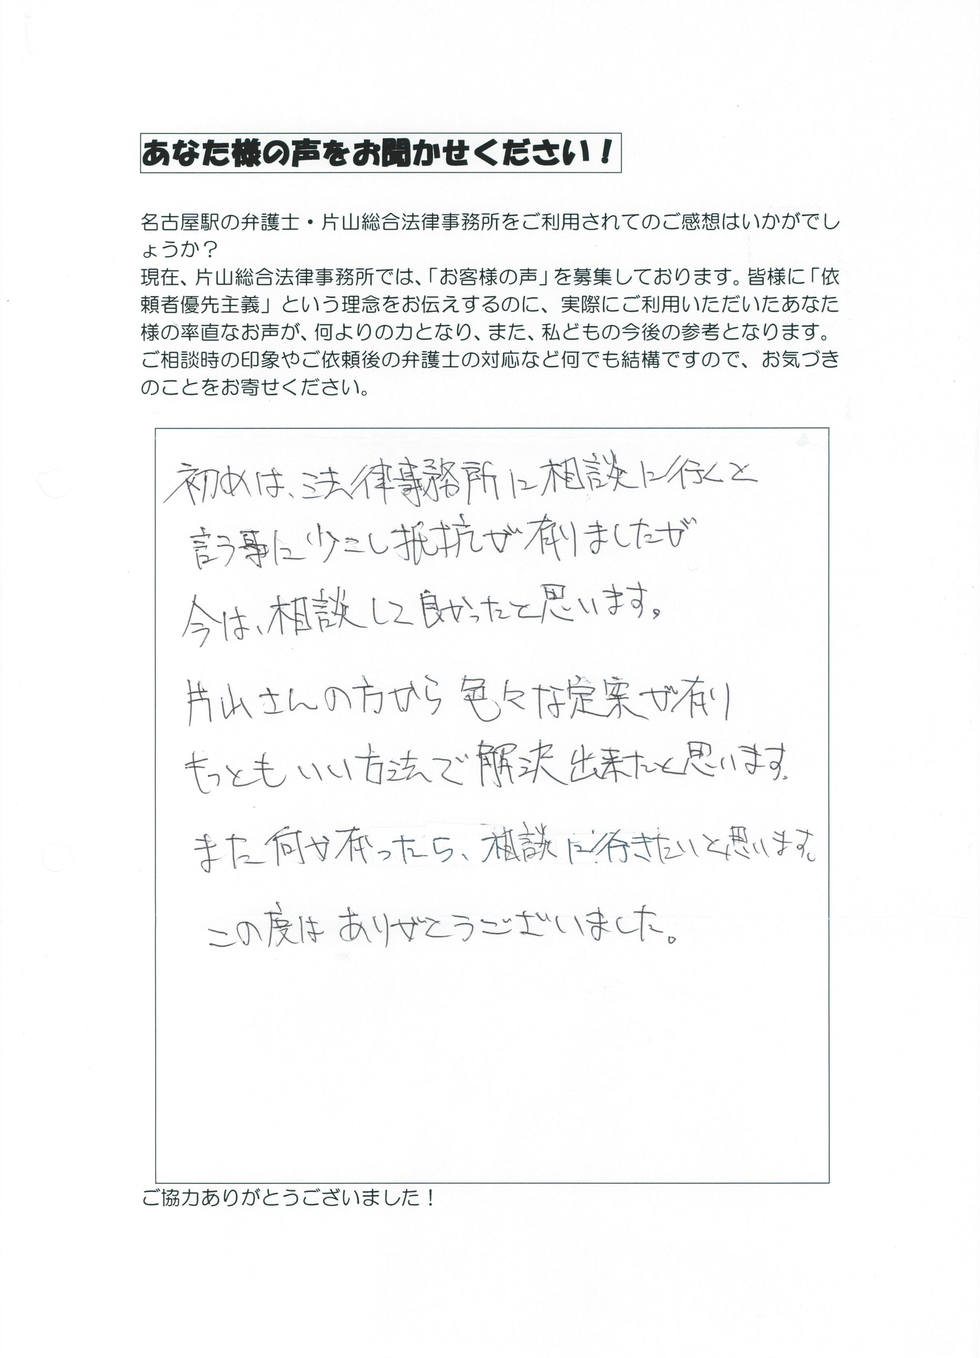 あなた様の声をお聞かせください！
名古屋駅の弁護士・片山総合法律事務所をご利用されてのご感想はいかがでし
ょうか？
現在、片山総合法律事務所では、「お客様の声」を募集しております。皆様に「依
頼者優先主義」という理念をお伝えするのに、実際にご利用いただいたあなた
様の率直なお声が、何よりの力となり、また、私どもの今後の参考となります。
ご相談時の印象やご依頼後の弁護士の対応など何でも結構ですので、お気づき
のことをお寄せください。
初めは、法律事務所に相談に行くと
言う事に少こし抵抗が有りましたが
今は、相談して良かったと思います。
片山さんの方から色々な定案が有り
もっともいい方法で解決出来たと思います。
また何か有ったら、相談に行きたいと思います。
この度はありがとうございました。
ご協力ありがとうございました！